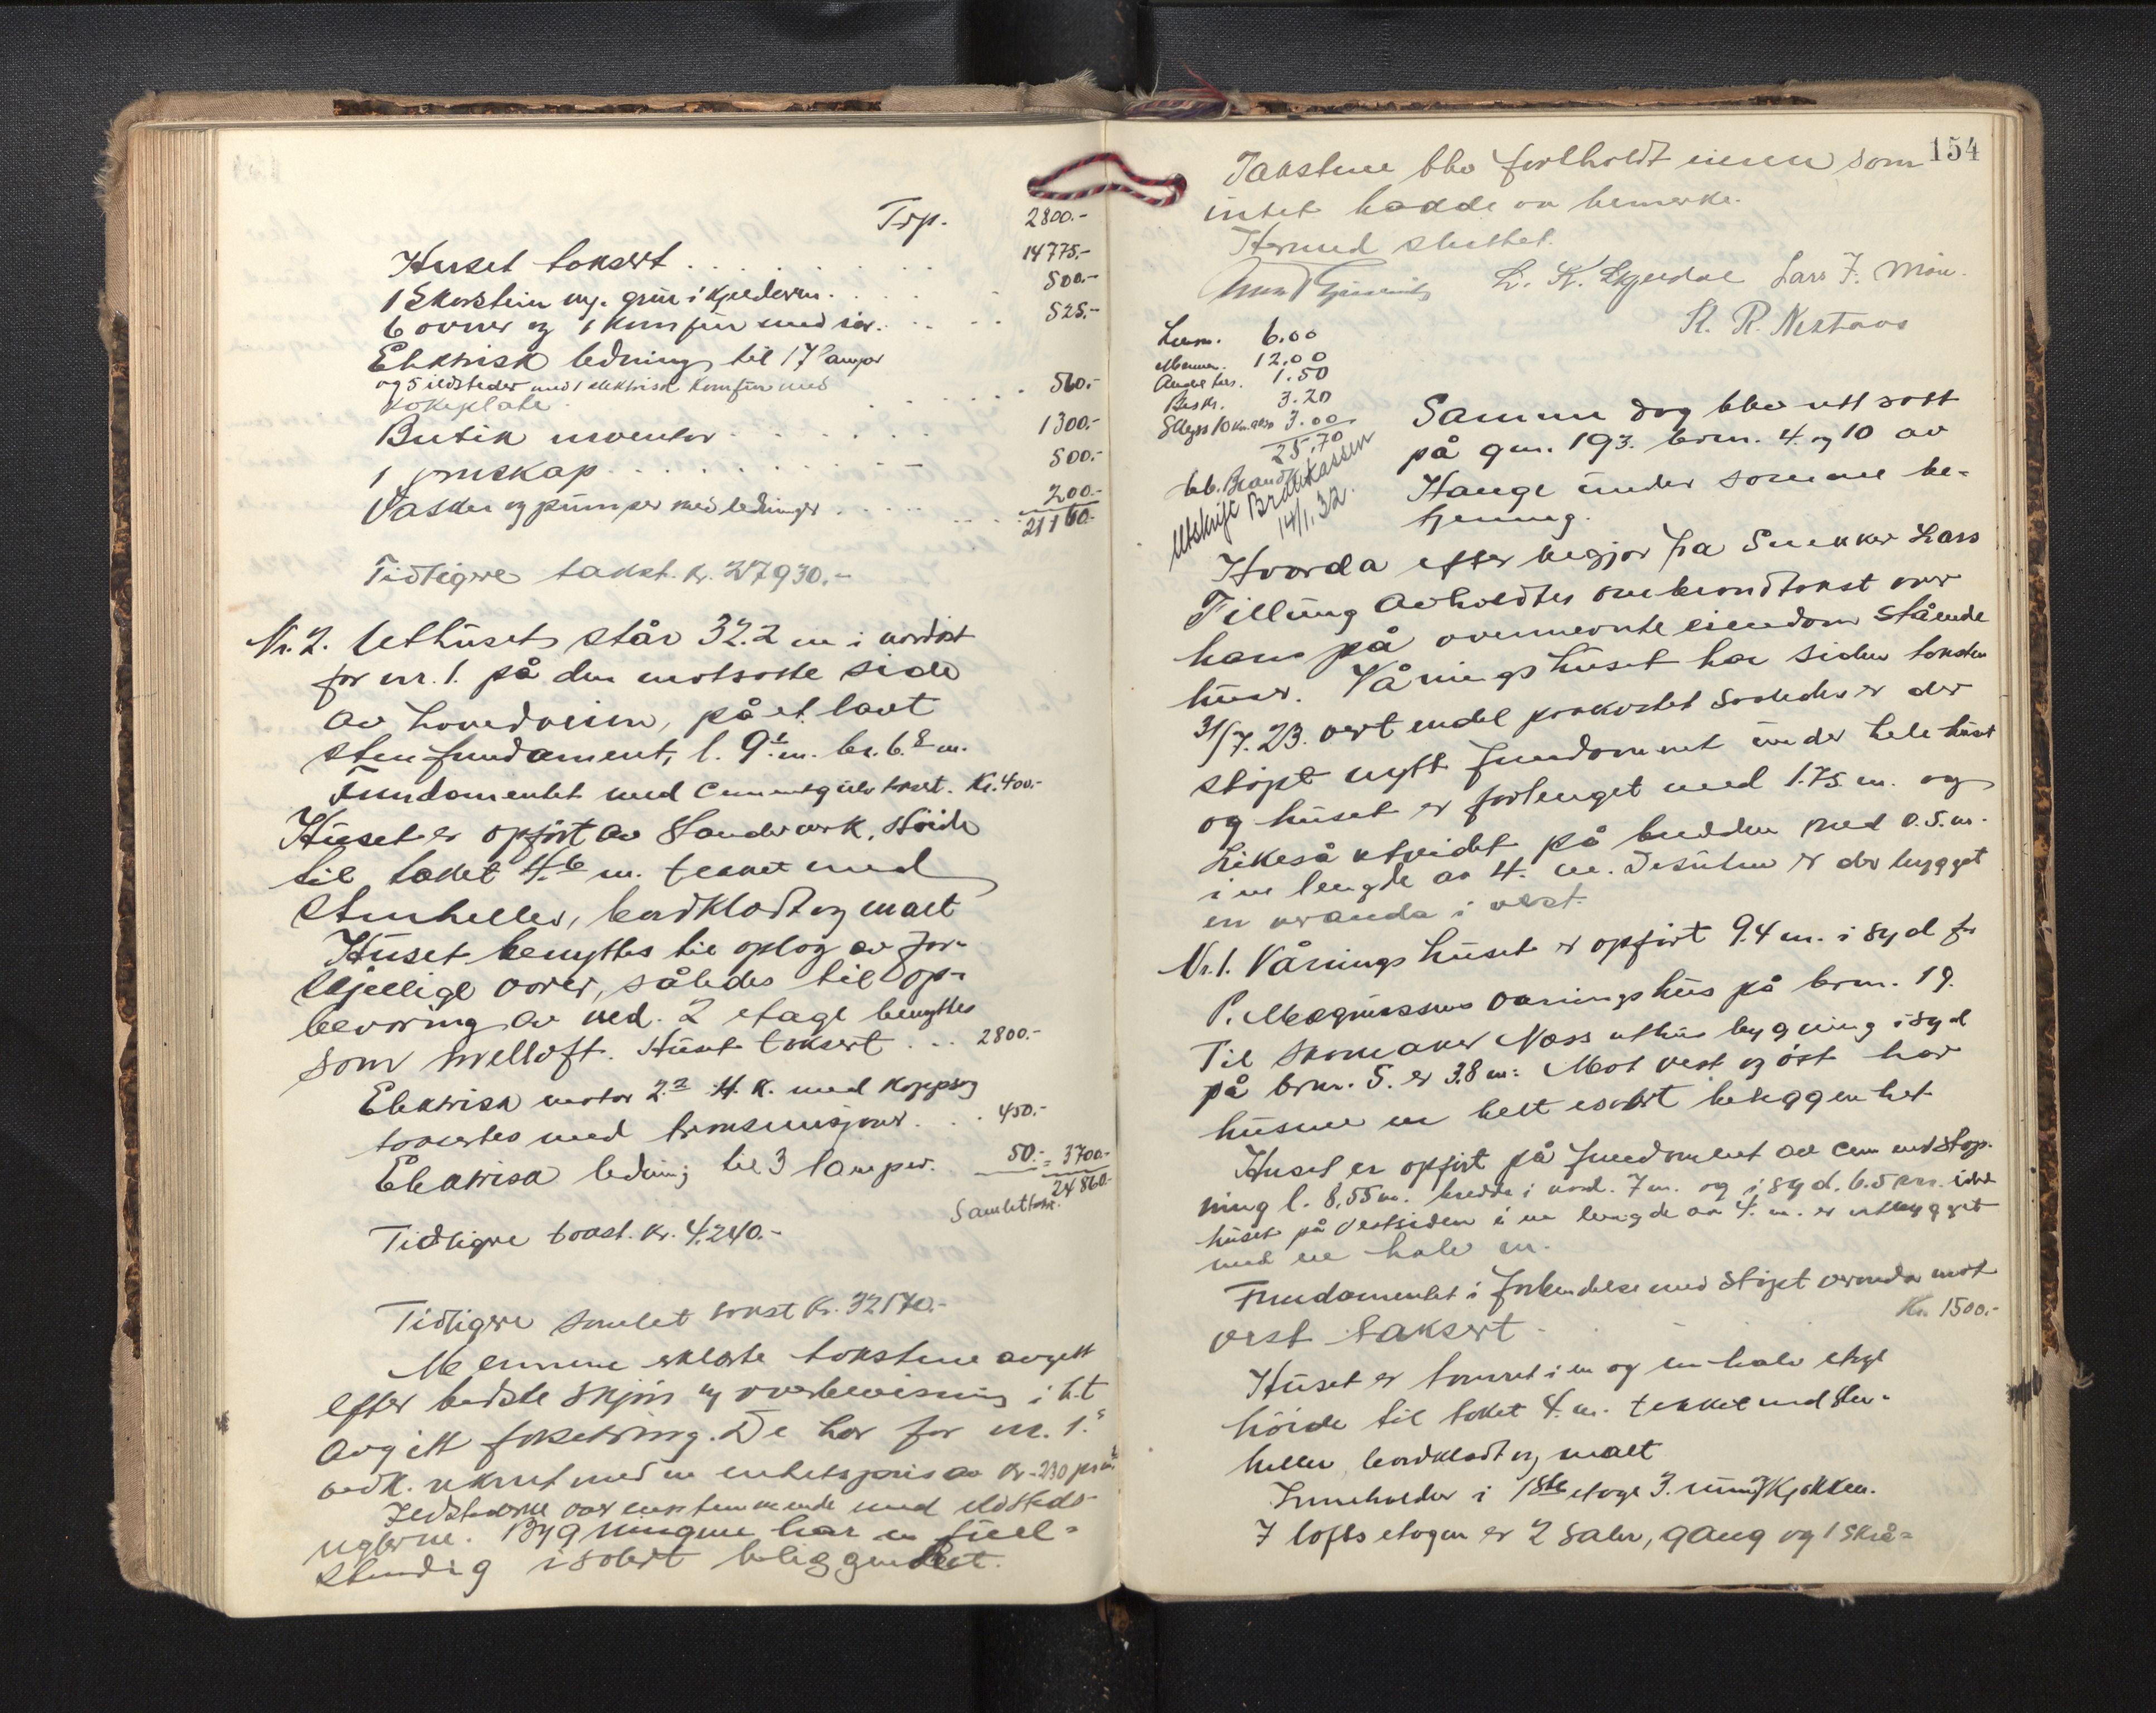 Trp. 2800.-
Huset taksert . . . . . . . . 14775.-
1 Skorstein og grue i kjelderen. . . . 500.-
6 ovner og 1 komfür med rør. . . . . 525.-
Elektrisk ledning til 17 lamper
og 5 ildsteder med 1 elektrisk komfür med
kokeplate . . . . . . 560.-
Butik inventar . . . . . . 1300.-
1 . . . . . . . . 500.-
Vasker og pumper med ledninger . . . . . 200.-
21160.-
Tidligere takst. kr. 27930.-
Nr. 2. Uthüset står 32.2 m i nordöst
for nr. 1. på den motsatte side
av hovedveien, på et lavt
stenfundament, l. 9.1 m. br. 6.8 m.
Fundamentet med Cementgulv takst. Kr. 400.-
Hüset er opført av Standverk, Höide
til taket 4.6 m. tekket med
Stenheller, bordklædt og malt
Hüset benyttes til oplag av for-
skjellige varer, således til op-
bevaring av ved. 2 etage benyttes
som melloft. Hüset taksert . . . 2800.-
Elektrisk motor 2.2 H. K. med Kappsag
taksertes med transmisjoner . . . 450.-
Elektrisk ledning til 3 lamper. 50.- = 3700.-
24860.-
Samlet takst.
Tidligere takst. Kr. 4.240.-
Tidligere samlet takst Kr. 32170.-
Mennene erklærte takstene avgitt
efter bedste skjøn og overbevisning i h.t
avgitt forsikring. De har for nr. 1.
vedk. regnet med en enhetspris av Kr. 230 pr m2
Ildstederne var overensstemmende med ildsteds-
reglerne. Bygningene har en full-
stendig isolert beliggenhet.
154
Takstene blev foreholdt eieren som
intet hadde at bemerke.
Hermed sluttet.
L. K. Skjerdal Lars J. Møn.
R. R. Nestaas
Lensm. 6.00
Mennene. 12.00
1.50
Beskr. 3.20
Skyss 10 km. 3.00
25.70
bb. Brandk
Utskrift Brandkassen
14/1. 32.
Samme dag blev rett satt
på gnr. 193. brnr. 4. og 10 av
Hauge under samme be-
tjening.
Hvorda efter begjær fra Snekker Lars
Tillüng avholdtes ombrandtakst over
hans på ovennevnte eiendom stående
hüser. Våningshüset har siden taksten
31/7. 23. vert endel påkostet således er der
støpt nytt fundament under hele hüset
og hüset er forlenget med 1.75 m. og
Likeså utvidet på bredden med 0.5. m.
i en lengde av 4. m. Desuten er der bygget
en veranda i vest.
Nr. 1. Våningshüset er opført 9.4 m. i syd for
P. Magnussens våningshus på brnr. 19.
Til Skomaker Næss uthusbygning i syd
på brnr. 5. er 3.8 m. Mot vest og öst har
hüsene en helt isolert beliggenhet.
Huset er opført på fundament av cementstøp-
ning l. 8,55 m. bredde i nord. 7 m. og i syd. 6.5 m. idet
hüset på Vestsiden i en lengde av 4. m. er utbygget
med en halv m.
Fundamentet i forbindelse med støpt veranda mot
vest taksert . . . Kr. 1500.-
Hüset er tømret i en og en halv etage
höide til taket 4. m. tekket med sten-
heller, bordklædt og malt
Inneholder i 1ste etage 3. rum og Kjøkken.
I loftsetagen er 2 saler, gang og 1 skrå=